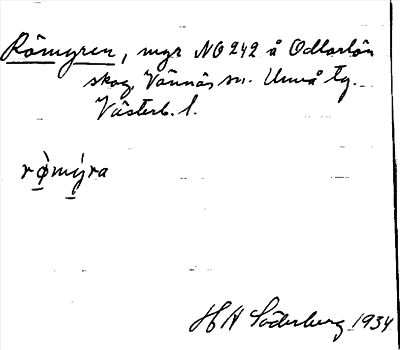 Römyren, myr NO 242 å Odlarlön
skog, Vännäs sn. Umeå tg.
Västerb. l.
rò̱mý̱ra
H A Söderberg 1934